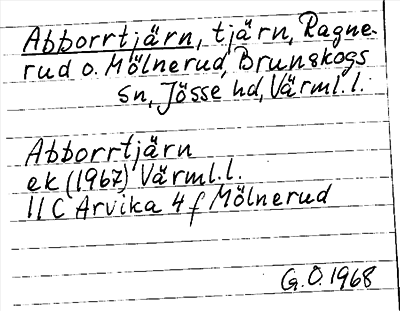 Abborrtjärn, tjärn, Ragne-
rud o. Mölnerud, Brunskogs
sn, Jösse hd, Värml. l.
Abborrtjärn
ek (1967) Värml. l.
11 C Arvika 4 f Mölnerud
G. O. 1968